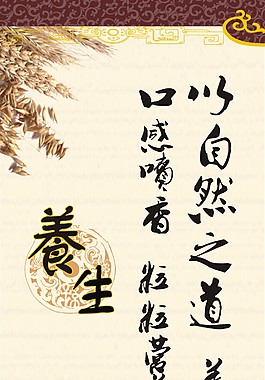 以自然之道
口感喷香 粒粒营
養生